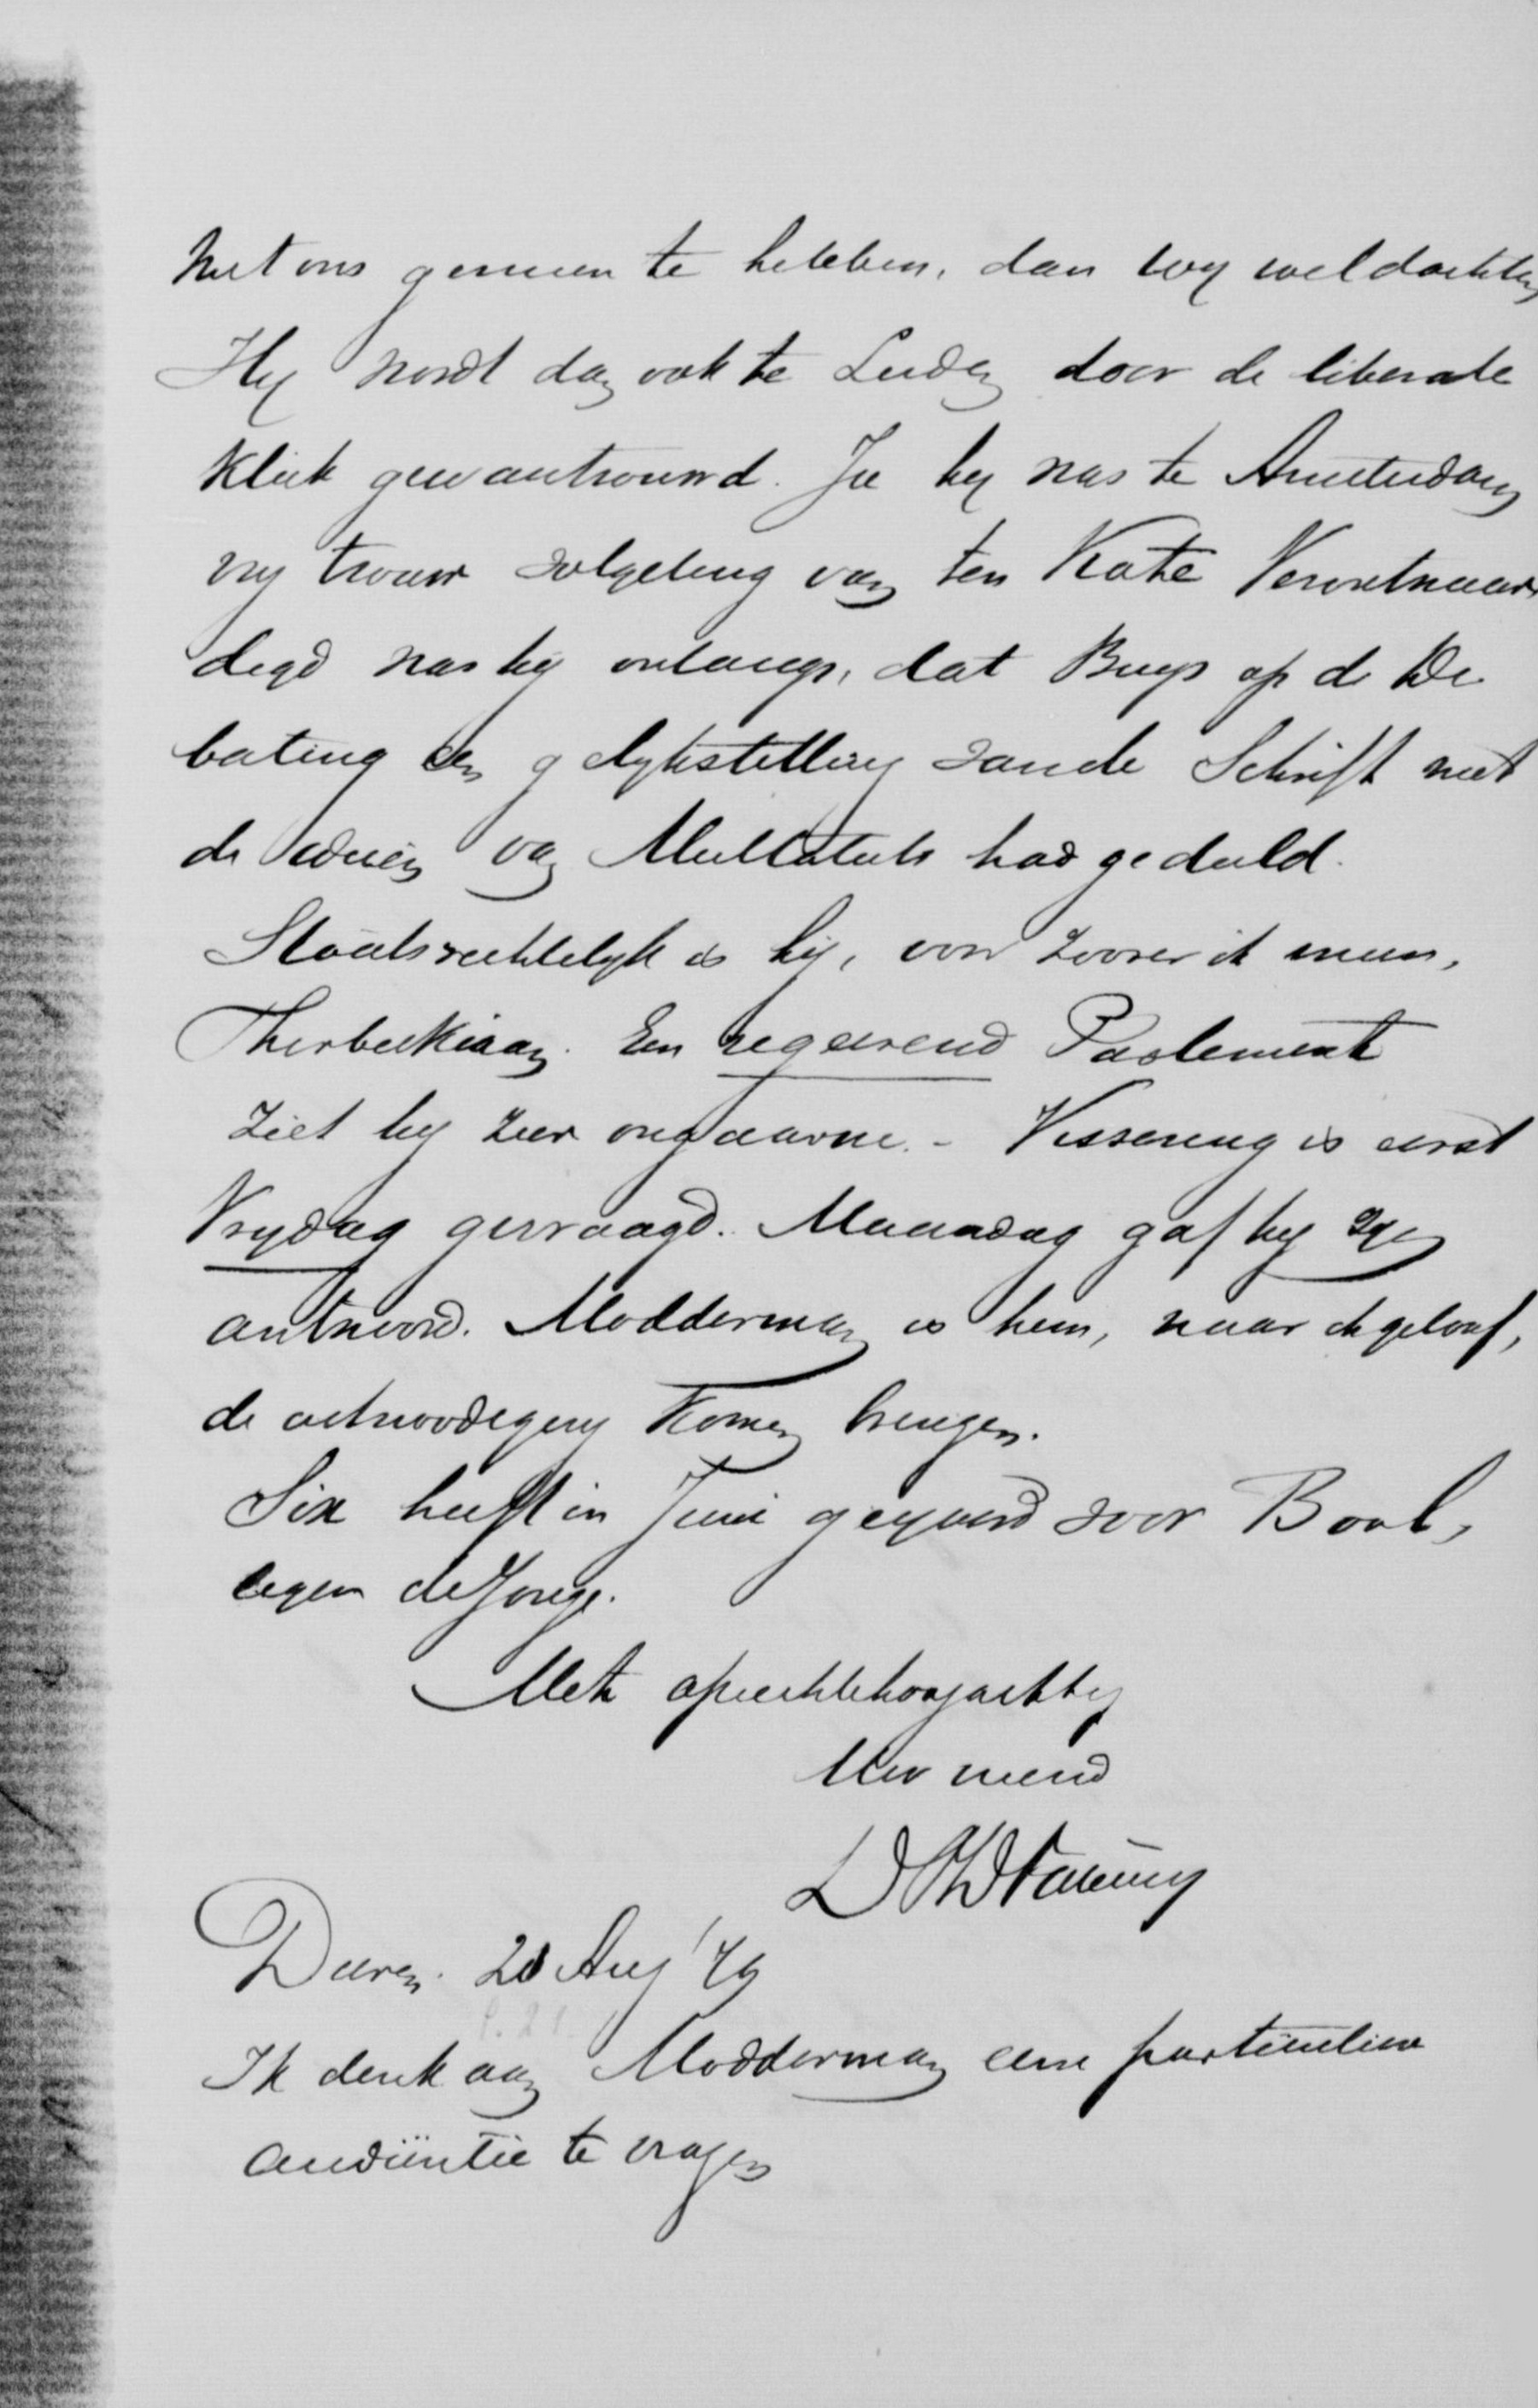 met ons gemeen te hebben, dan wy wel dachten
Hy wordt dan ook te Leiden door de liberale
kliek gewantrouwd. Ja hy was te Amsterdam
een trouw volgeling van ten Kate Verontwaar
digd was hy onlangs, dat Buys op de De
bating een gelykstelling van de Schrift met
de ideën van Multatuli had geduld.
Staatsrechtelyk is hy, voor zoover ik meen,
Thorbeckiaan. Een regeerend Parlement
ziet hy zeer ongaarne. - Vissering is eerst
Vrydag gevraagd. Maandag gaf hy zyn
antwoord. Modderman is hem, naar ik geloof,
de uitnoodiging komen brengen.
Six heeft in Juni geyverd voor Bool,
tegen de Jonge.
Met oprechte hoogachting
Uw vriend
D P D Fabius
Buren. 20 Aug '79
Ik denk aan Modderman eene particuliere
audiëntie te vragen